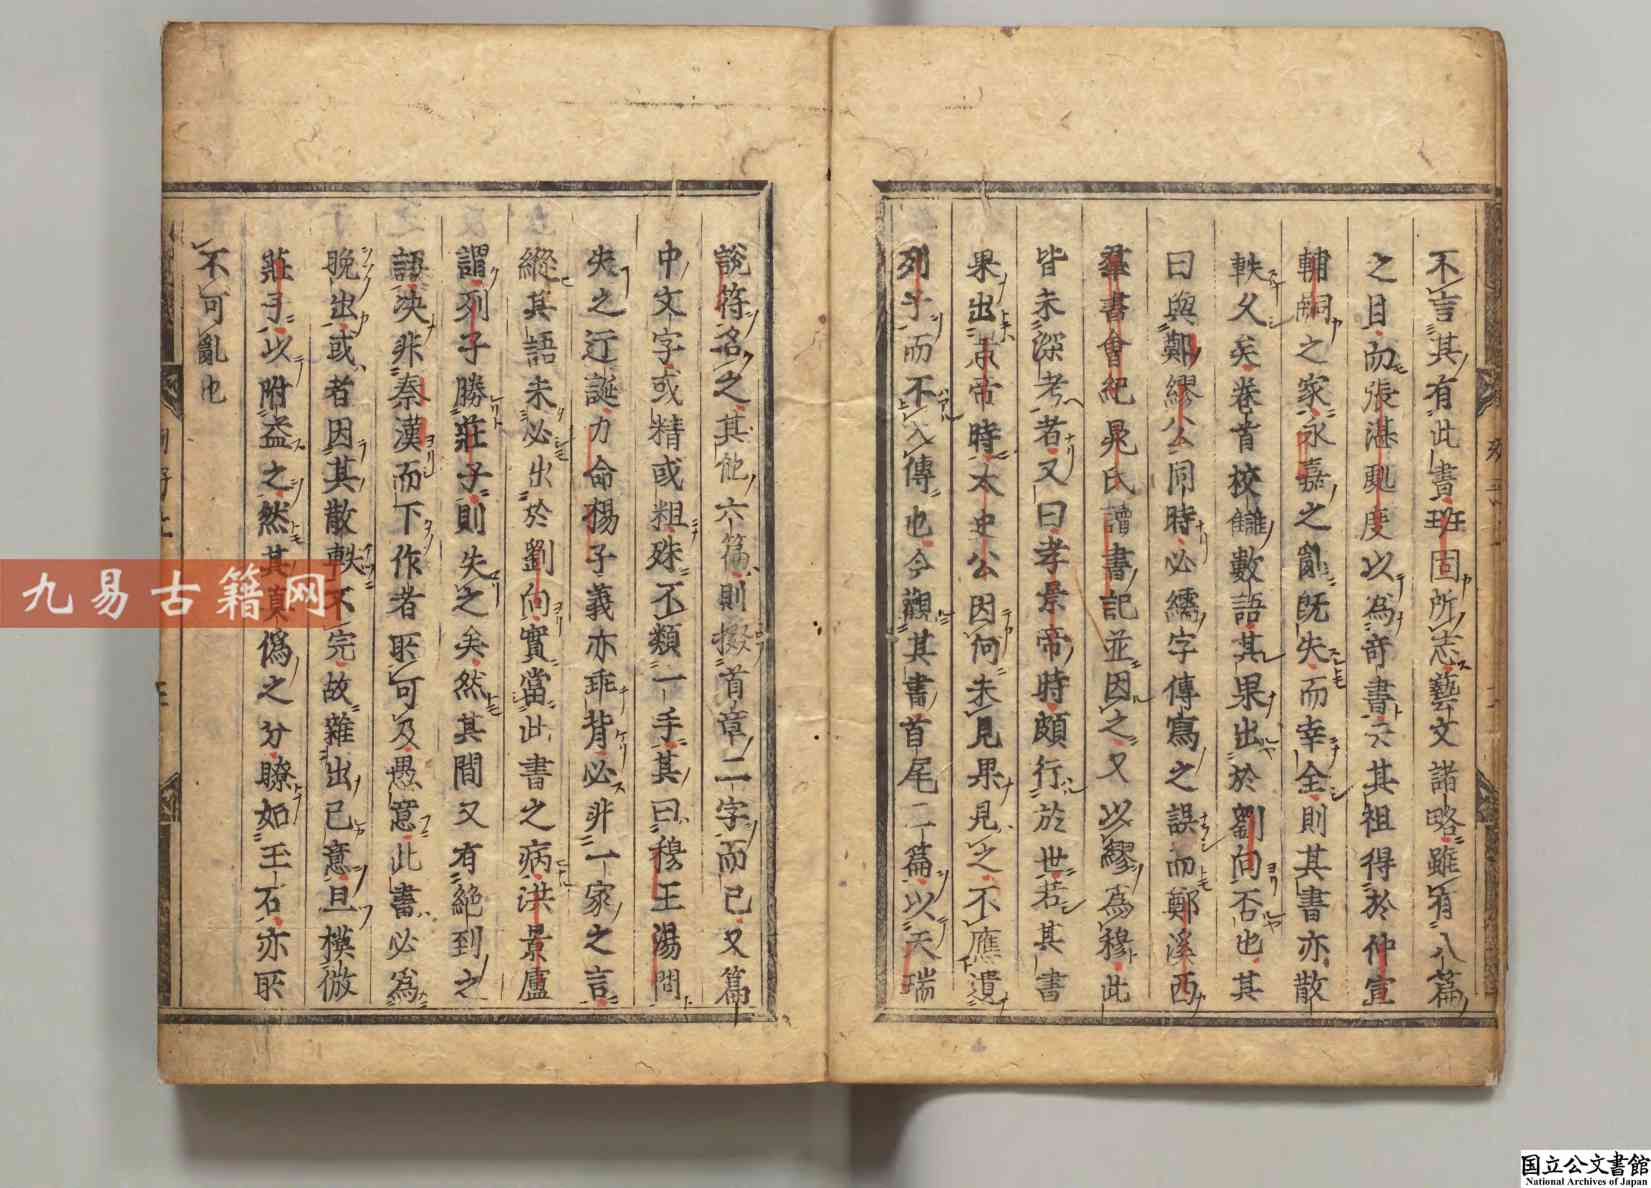 不言其有此書班固所志藝文諸略雖有八篇
之目而張湛甈度以為竒書六其祖得於仲宣
輔嗣之家永嘉之亂既失而幸全則其書亦散
軼久矣卷首校讎數語其果出於劉向否也其
曰與鄭繆公同時必繻字傳寫之誤而鄭溪西
羣書會紀晁氏讀書記並因之又以繆為穆此
皆未深考者又曰孝景帝時頗行於世若其書
果出景帝時太史公因何未見果見之不應遺
列子而不入傳也今觀其書首尾二篇以天瑞
說符名之其他六篇則掇首章二字而已又篇
中文字或精或粗殊不類一手其曰穆王湯問
失之迂誕力命楊子義亦乖背必非一家之言
縱其語未必出於劉向實當此書之病洪景盧
謂列子勝莊子則失之矣然其間又有絕到之
語决非秦漢而下作者所可及愚意此書必為
晚出或者因其散軼不完故雜出已意且模倣
莊子以附益之然其真偽之分瞭如玉石亦所
不可亂也
九易古籍网
国立公文書館
National Archives of Japan